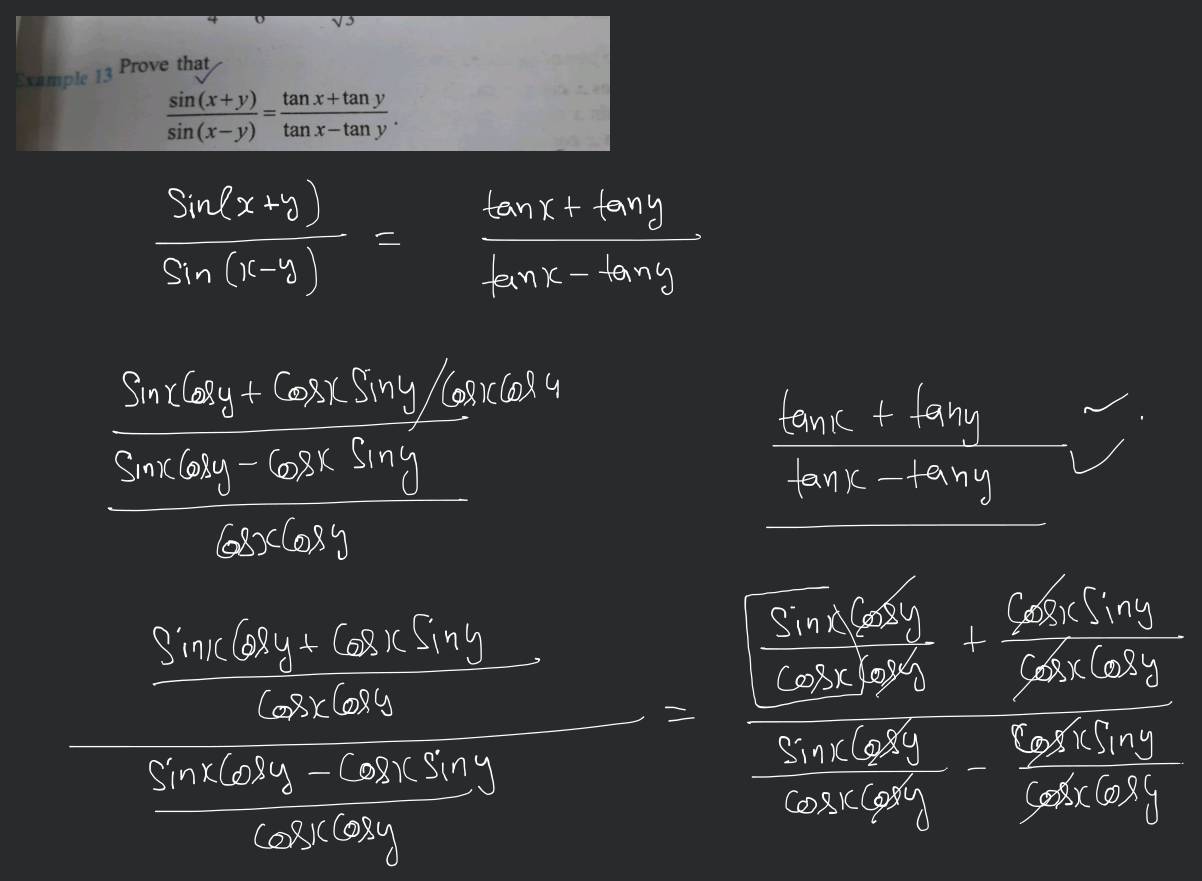 4 6 √3
Example 13 Prove that
sin(x+y) / sin(x−y) = tan x+tan y / tan x−tan y .
Sin(x+y) / Sin(x−y) = tanx + tany / tanx − tany
Sinx Cosy + Cosx Siny / Cosx Cosy
Sinx Cosy − Cosx Siny
Cosx Cosy
tanx + tany
tanx − tany
Sinx Cosy + Cosx Siny
Cosx Cosy
Sinx Cosy − Cosx Siny
Cosx Cosy
=
Sinx Cosy / Cosx Cosy + Cosx Siny / Cosx Cosy
Sinx Cosy / Cosx Cosy − Cosx Siny / Cosx Cosy